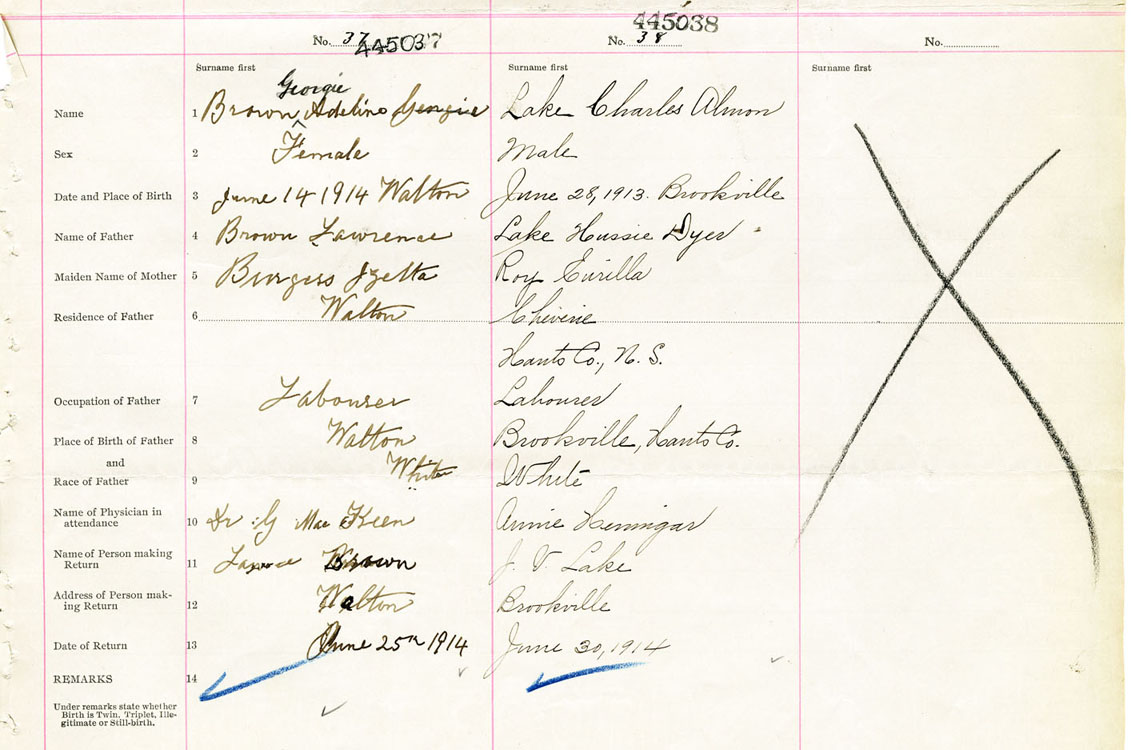 445038
No. 37 445037 No. 38 No.
Surname first Surname first Surname first
Georgie
Name 1 Brown, Adeline Georgie Lake Charles Almon
Sex 2 Female Male
Date and Place of Birth 3 June 14 1914 Walton June 28, 1913. Brookville
Name of Father 4 Brown Lawrence Lake Hussie Dyer
Maiden Name of Mother 5 Burgess Izetta Roy Eurilla
Residence of Father 6 Walton Cheverie
Hants Co., N. S.
Occupation of Father 7 Labourer Labourer
Place of Birth of Father 8 Walton Brookville, Hants Co.
and
Race of Father 9 White White
Name of Physician in
attendance 10 Dr G MacKeen Annie Henningar
Name of Person making
Return 11 Brown J. V. Lake
Address of Person mak-
ing Return 12 Walton Brookville
Date of Return 13 June 25th 1914 June 30, 1914
REMARKS 14
Under remarks state whether
Birth is Twin, Triplet, Ille-
gitimate or Still-birth.